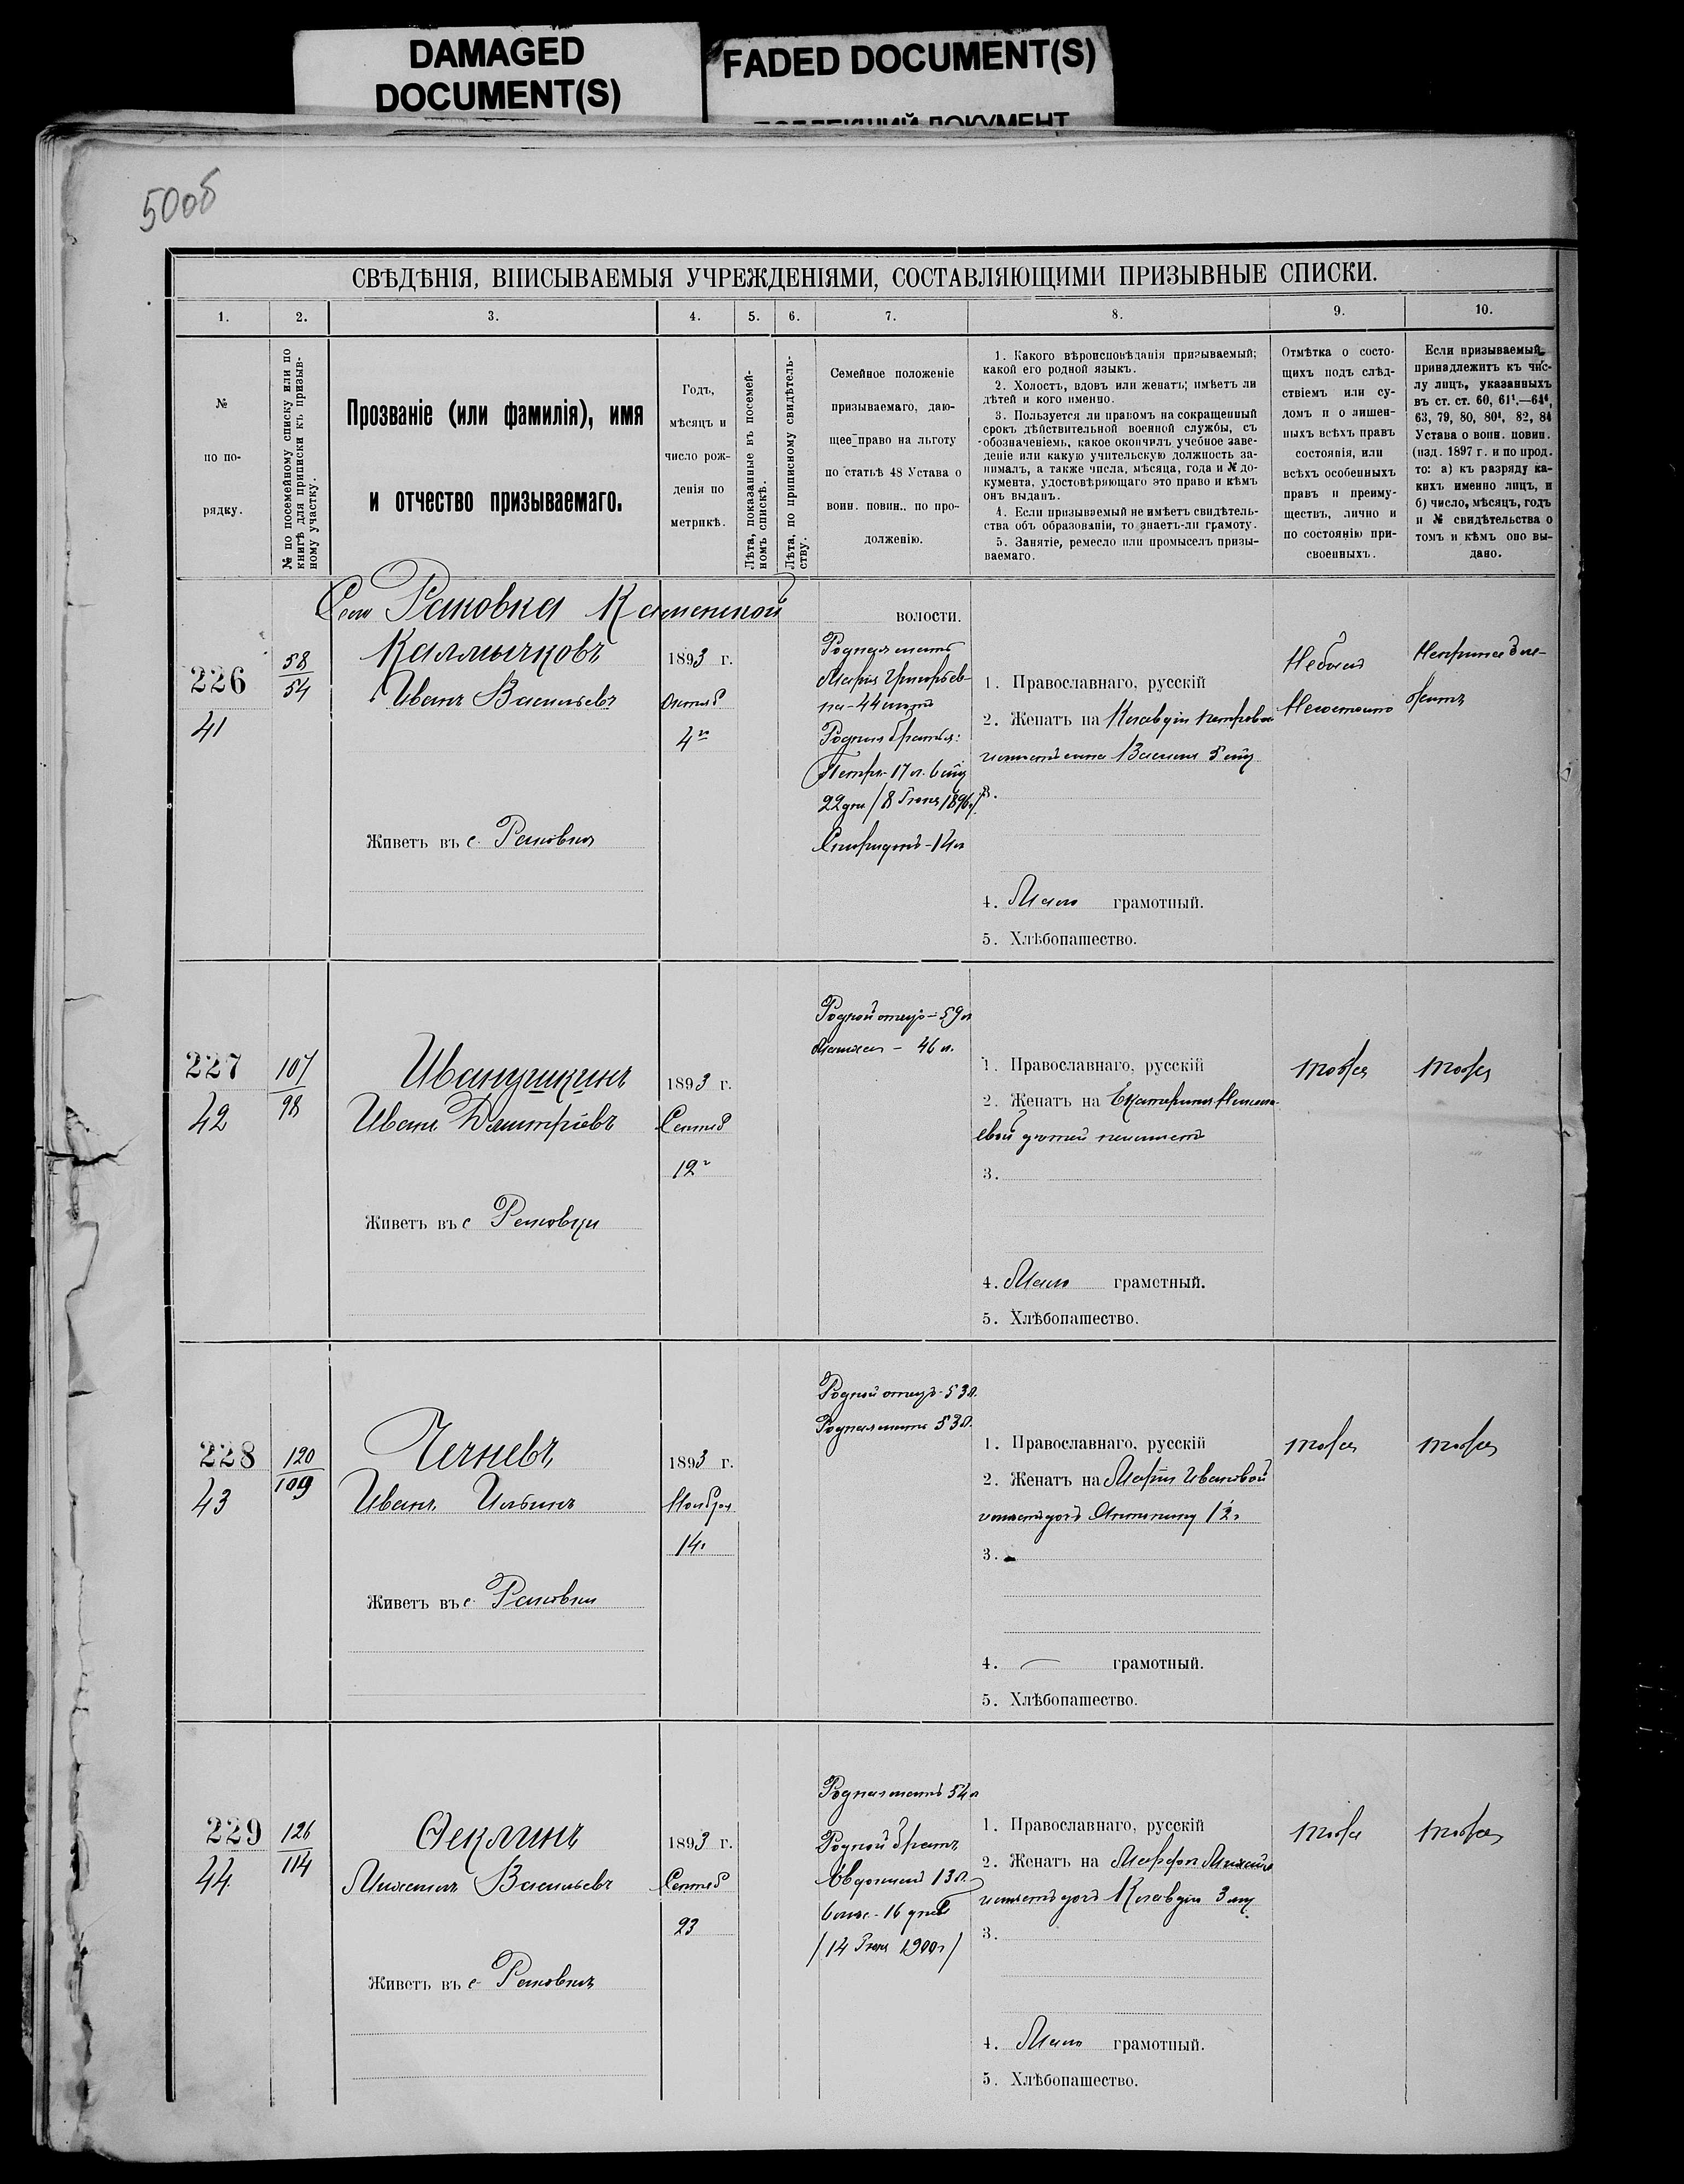 DAMAGED
DOCUMENT(S)
FADED DOCUMENT(S)
50об
СВѢДѢНІЯ, ВПИСЫВАЕМЫЯ УЧРЕЖДЕНІЯМИ, СОСТАВЛЯЮЩИМИ ПРИЗЫВНЫЕ СПИСКИ.
1. 2. 3. 4. 5. 6. 7. 8. 9. 10.
№
по по-
рядку.
№ по посемейному списку или по
книгѣ для приписки къ призыв-
ному участку.
Прозваніе (или фамилія), имя
и отчество призываемаго.
Годъ,
мѣсяцъ и
число рож-
денія по
метрикѣ.
Лѣта, показанные въ посемей-
номъ спискѣ.
Лѣта, по приписному свидѣтель-
ству.
Семейное положеніе
призываемаго, даю-
щее право на льготу
по статьѣ 48 Устава о
воин. повин.. по про-
долженію.
1. Какого вѣроисповѣданія призываемый;
какой его родной языкъ.
2. Холостъ, вдовъ или женатъ; имѣетъ ли
дѣтей и кого именно.
3. Пользуется ли правомъ на сокращенный
срокъ дѣйствительной военной службы, съ
обозначеніемъ, какое окончилъ учебное заве-
деніе или какую учительскую должность за-
нималъ, а также числа, мѣсяца, года и № до-
кумента, удостовѣряющаго это право и кѣмъ
онъ выданъ.
4. Если призываемый не имѣетъ свидѣтель-
ства объ образованіи, то знаетъ-ли грамоту.
5. Занятіе, ремесло или промыселъ призы-
ваемаго.
Отмѣтка о состо-
щихъ подъ слѣд-
ствіемъ или су-
домъ и о лишен-
ныхъ всѣхъ правъ
состоянія, или
всѣхъ особенныхъ
правъ и преиму-
ществъ, лично и
по состоянію при-
своенныхъ.
Если призываемый
принадлежитъ къ чис-
лу лицъ, указанныхъ
въ ст. ст. 60, 61¹.—64⁴,
63, 79, 80, 80¹, 82, 84
Устава о воин. повин.
(изд. 1897 г. и по прод.
то: а) къ разряду ка-
кихъ именно лицъ, и
б) число, мѣсяцъ, годъ
и № свидѣтельства о
томъ и кѣмъ оно вы-
дано.
Раковка Каменской волости.
226
41
58
54
Калмычковъ
Иванъ Васильевъ
Живетъ въ с. Раковкѣ
1893 г.
Октяб
4го
Родная мать
Марія Григорьев-
на - 44 лѣтъ
Родныя братья:
Петръ - 17 л. 6 мѣс
22 дня / 8 Іюня 1896 г/
Спиридонъ - 14 л
1. Православнаго, русскій
2. Женатъ на Клавдіи Петровой
имѣетъ сына Василія 5 мѣс
3.
4. Мало грамотный.
5. Хлѣбопашество.
Небылъ
Несостоитъ
Непринадле-
житъ
227
42
107
98
Иванушкинъ
Иванъ Дмитріевъ
Живетъ въ с Раковкѣ
1893 г.
Сентяб
12г
Родной отецъ - 59 л
Мачеха - 46 л.
1. Православнаго, русскій
2. Женатъ на Екатеринѣ
евой дѣтей неимѣетъ
3.
4. Мало грамотный.
5. Хлѣбопашество.
тоже
тоже
228
43
120
109
Чечневъ
Иванъ Ильинъ
Живетъ въ с. Раковкѣ
1893 г.
Ноября
14
Родной отецъ - 53 л.
Родная мать 53 л.
1. Православнаго, русскій
2. Женатъ на Маріи Ивановой
имѣетъ дочь Антонину 1/2 г
3.
4. — грамотный.
5. Хлѣбопашество.
тоже
тоже
229
44
126
114
Ѳеклинъ
Михаилъ Васильевъ
Живетъ въ с. Раковкѣ
1893 г.
Сентяб
23
Родная мать 54 л
Родной братъ
Евдокимъ 13 л.
6 мѣс - 16 дней
/ 14 Іюня 1900 г /
1. Православнаго, русскій
2. Женатъ на Марфѣ
имѣетъ дочь Клавдію 3 мѣс
3.
4. Мало грамотный.
5. Хлѣбопашество.
тоже
тоже